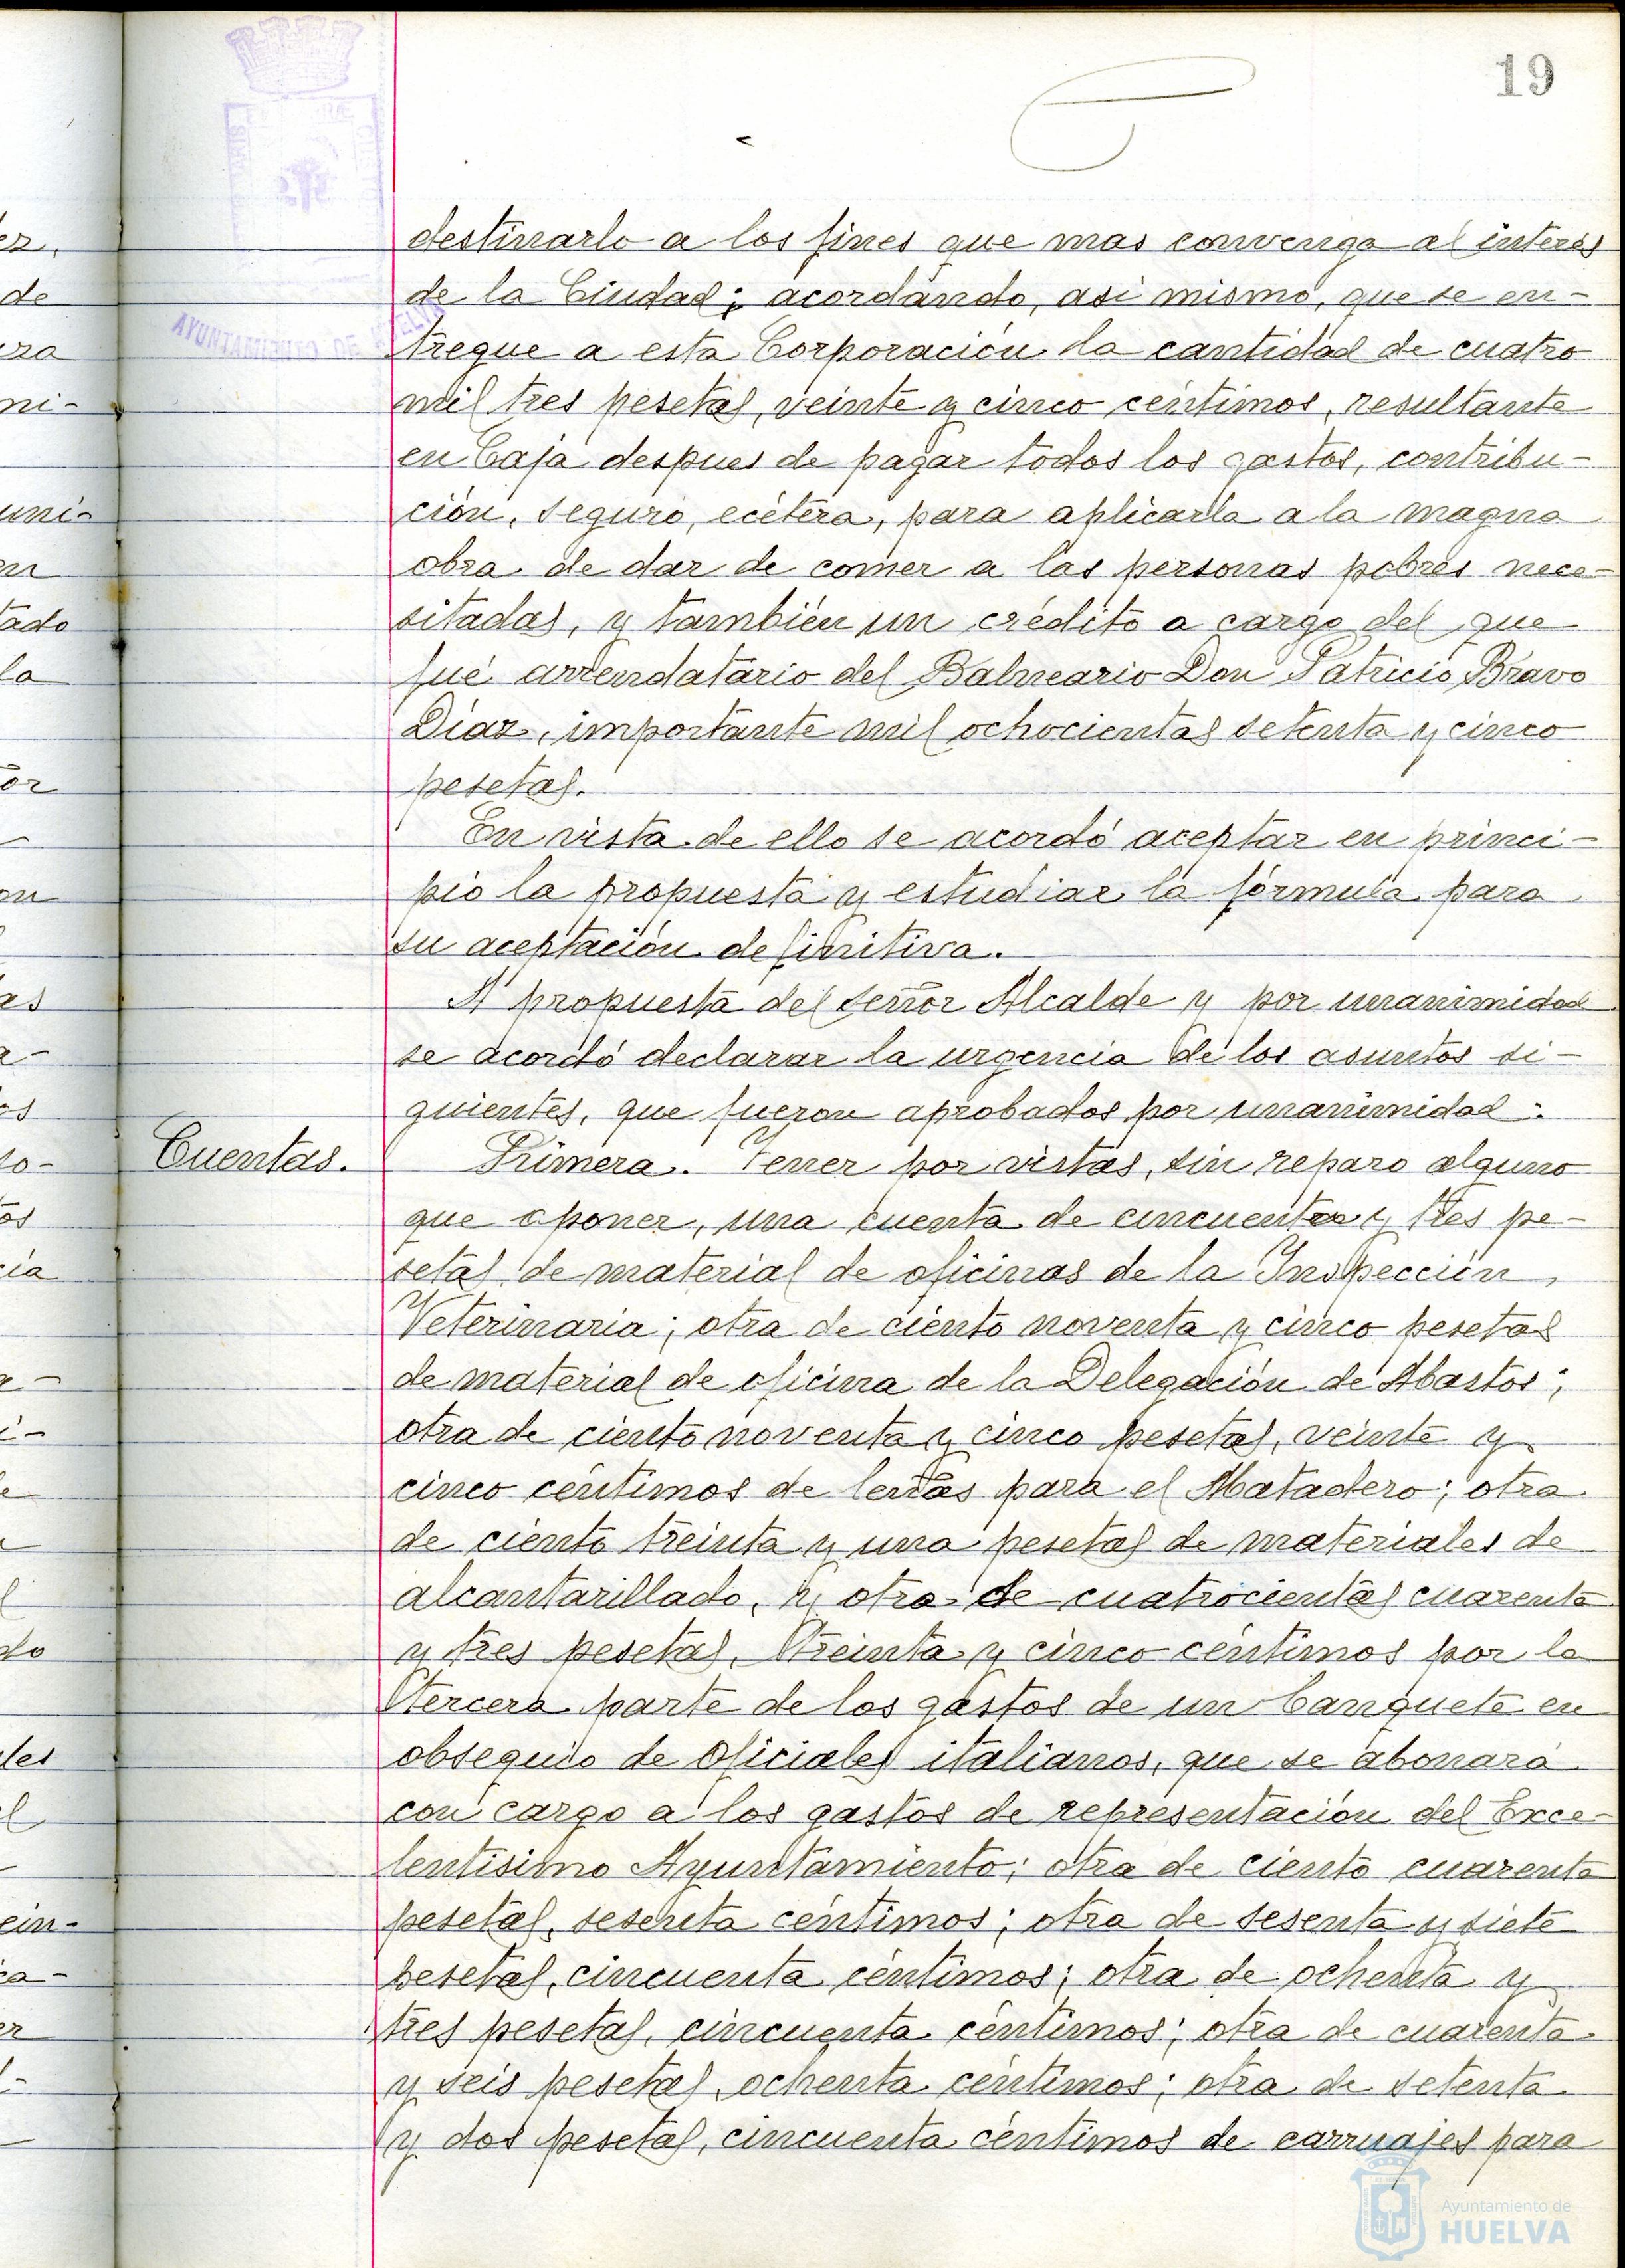 19
destinarlo a los fines que mas convenga al interés
de la Ciudad; acordándo, asi mismo, que se en-
AYUNTAMIENTO DE HUELVA
tregue a esta Corporación la cantidad de cuatro
mil tres pesetas, veinte y cinco céntimos, resultante
en Caja despues de pagar todos los gastos, contribu-
ción, seguro, ecétera, para aplicarla a la magna
obra de dar de comer a las personas pobres nece-
sitadas, y también un crédito a cargo del que
fué arrendatario del Balneario Don Patricio Bravo
Diaz, importante mil ochocientas setenta y cinco
pesetas.
En vista de ello se acordó aceptar en princi-
pio la propuesta y estudiar la fórmula para
su aceptación definitiva.
A propuesta del señor Alcalde y por unanimidad
se acordó declarar la urgencia de los asuntos si-
guientes, que fueron aprobados por unanimidad:
Cuentas. Primera. Tener por vistas, sin reparo alguno
que oponer, una cuenta de cincuenta y tres pe-
setas de material de oficinas de la Inspección
Veterinaria; otra de ciento noventa y cinco pesetas
de material de oficina de la Delegación de Abastos;
otra de ciento noventa y cinco pesetas, veinte y
cinco céntimos de leñas para el Matadero; otra
de ciento treinta y una pesetas de materiales de
alcantarillado, y otra de cuatrocientas cuarenta
y tres pesetas, treinta y cinco céntimos por la
tercera parte de los gastos de un banquete en
obsequio de Oficiales italianos, que se abonará
con cargo a los gastos de representación del Exce-
lentisimo Ayuntamiento; otra de ciento cuarenta
pesetas, sesenta céntimos; otra de sesenta y siete
pesetas, cincuenta céntimos; otra de ochenta y
tres pesetas, cincuenta céntimos; otra de cuarenta
y seis pesetas, ochenta céntimos; otra de setenta
y dos pesetas, cincuenta céntimos de carruajes para
Ayuntamiento de
HUELVA